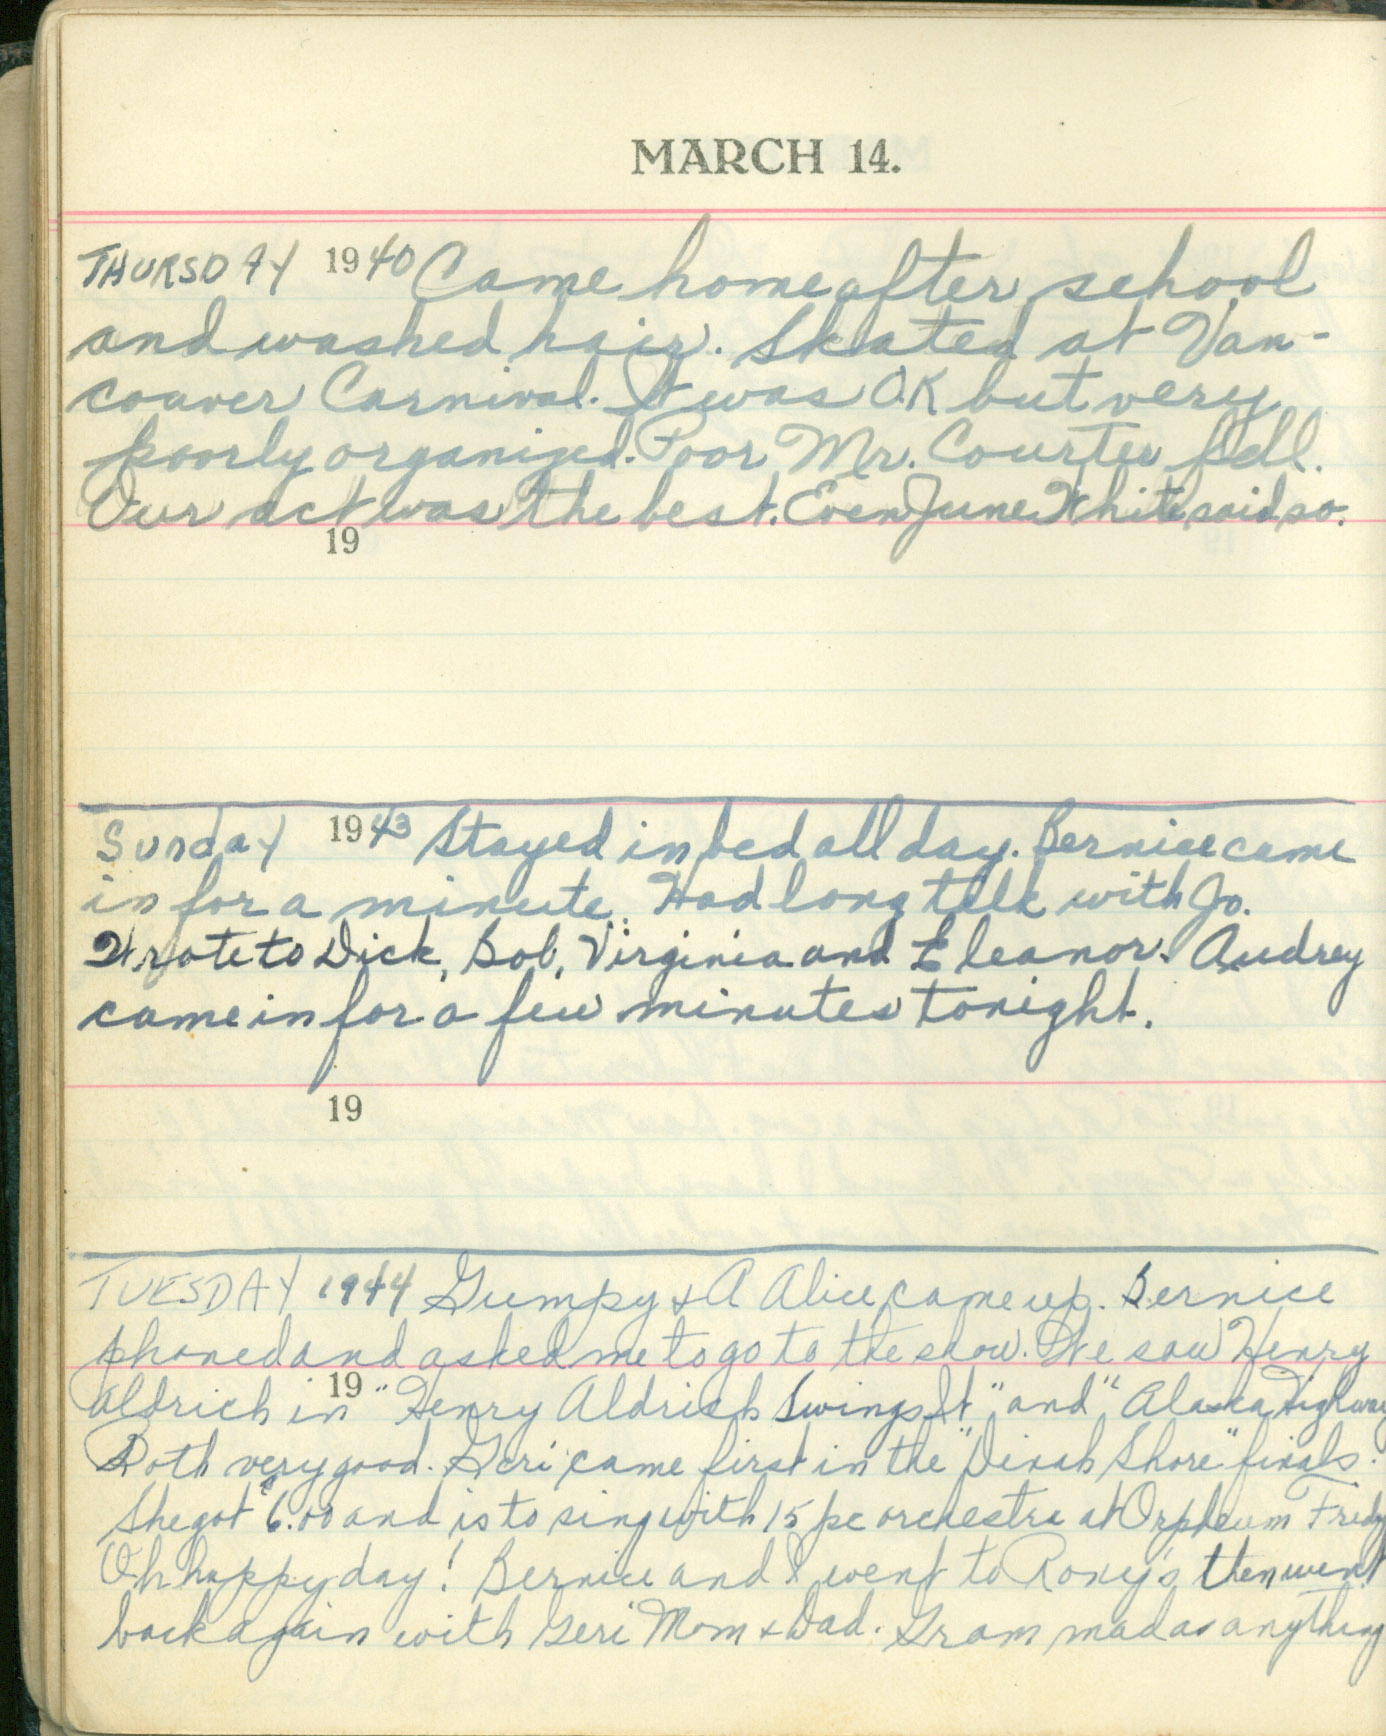 MARCH 14.
THURSDAY 1940 Came home after school
and washed hair. Skated at Van-
couver Carnival. It was OK but very
poorly organized. Poor Mr. Courter fell.
Our act was the best. Even June White said so.
19
Sunday 1943 Stayed in bed all day. Bernice came
in for a minute. Had long talk with Jo.
Wrote to Dick, Bob, Virginia and Eleanor. Audrey
came in for a few minutes tonight.
19
TUESDAY 1944 Gumpy & A Alice came up. Bernice
phoned and asked me to go to the show. We saw Henry
19
Aldrich in "Henry Aldrich Swings It" and "Alaska Highway
Both very good. Geri came first in the "Dinah Shore" finals.
She got $6.00 and is to sing with 15 pc orchestra at Orpheum Friday
Oh happy day! Bernice and I went to Roxy's then went
back again with Geri Mom & Dad. Gram mad as anything